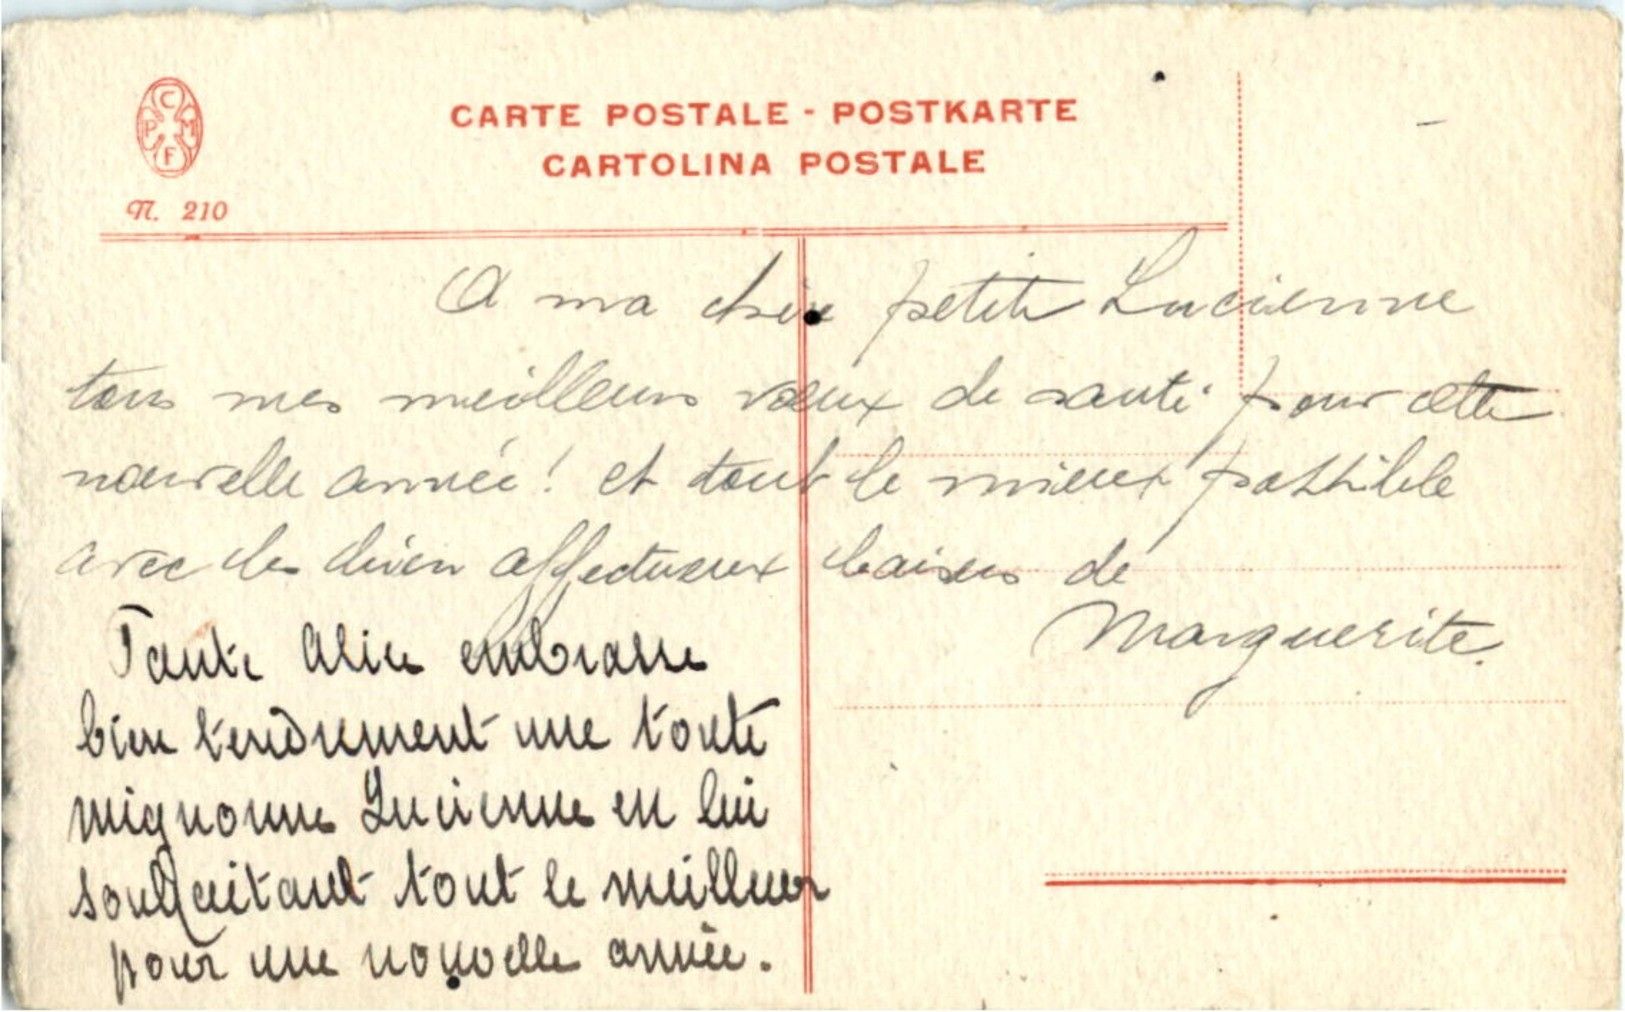 C
P M
F
CARTE POSTALE - POSTKARTE
CARTOLINA POSTALE
N. 210
A ma chère petite Lucienne
tous mes meilleurs vœux de santé pour cette
nouvelle année! et tout le mieux possible
avec les bien affectueux baisers de
Marguerite.
Tante Alice embrasse
bien tendrement une toute
mignonne Lucienne en lui
souhaitant tout le meilleur
pour une nouvelle année.